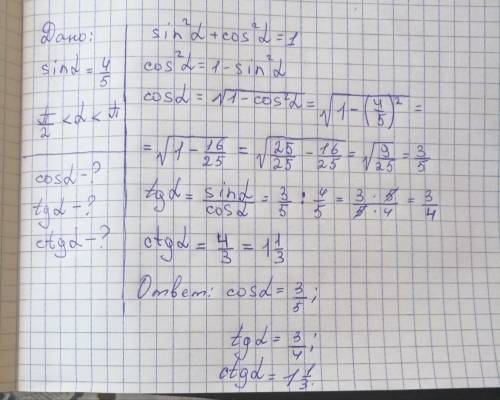 Дано:
sinα = 4/5
π/2 < α < π
cosα - ?
tgα - ?
ctgα - ?
sin²α + cos²α = 1
cos²α = 1 - sin²α
cosα = √(1 - cos²α) = √(1 - (4/5)²) =
= √(1 - 16/25) = √(25/25 - 16/25) = √(9/25) = 3/5
tgα = sinα/cosα = 3/5 : 4/5 = (3 · 5)/(5 · 4) = 3/4
ctgα = 4/3 = 1 1/3
Ответ: cosα = 3/5;
tgα = 3/4;
ctgα = 1 1/3.